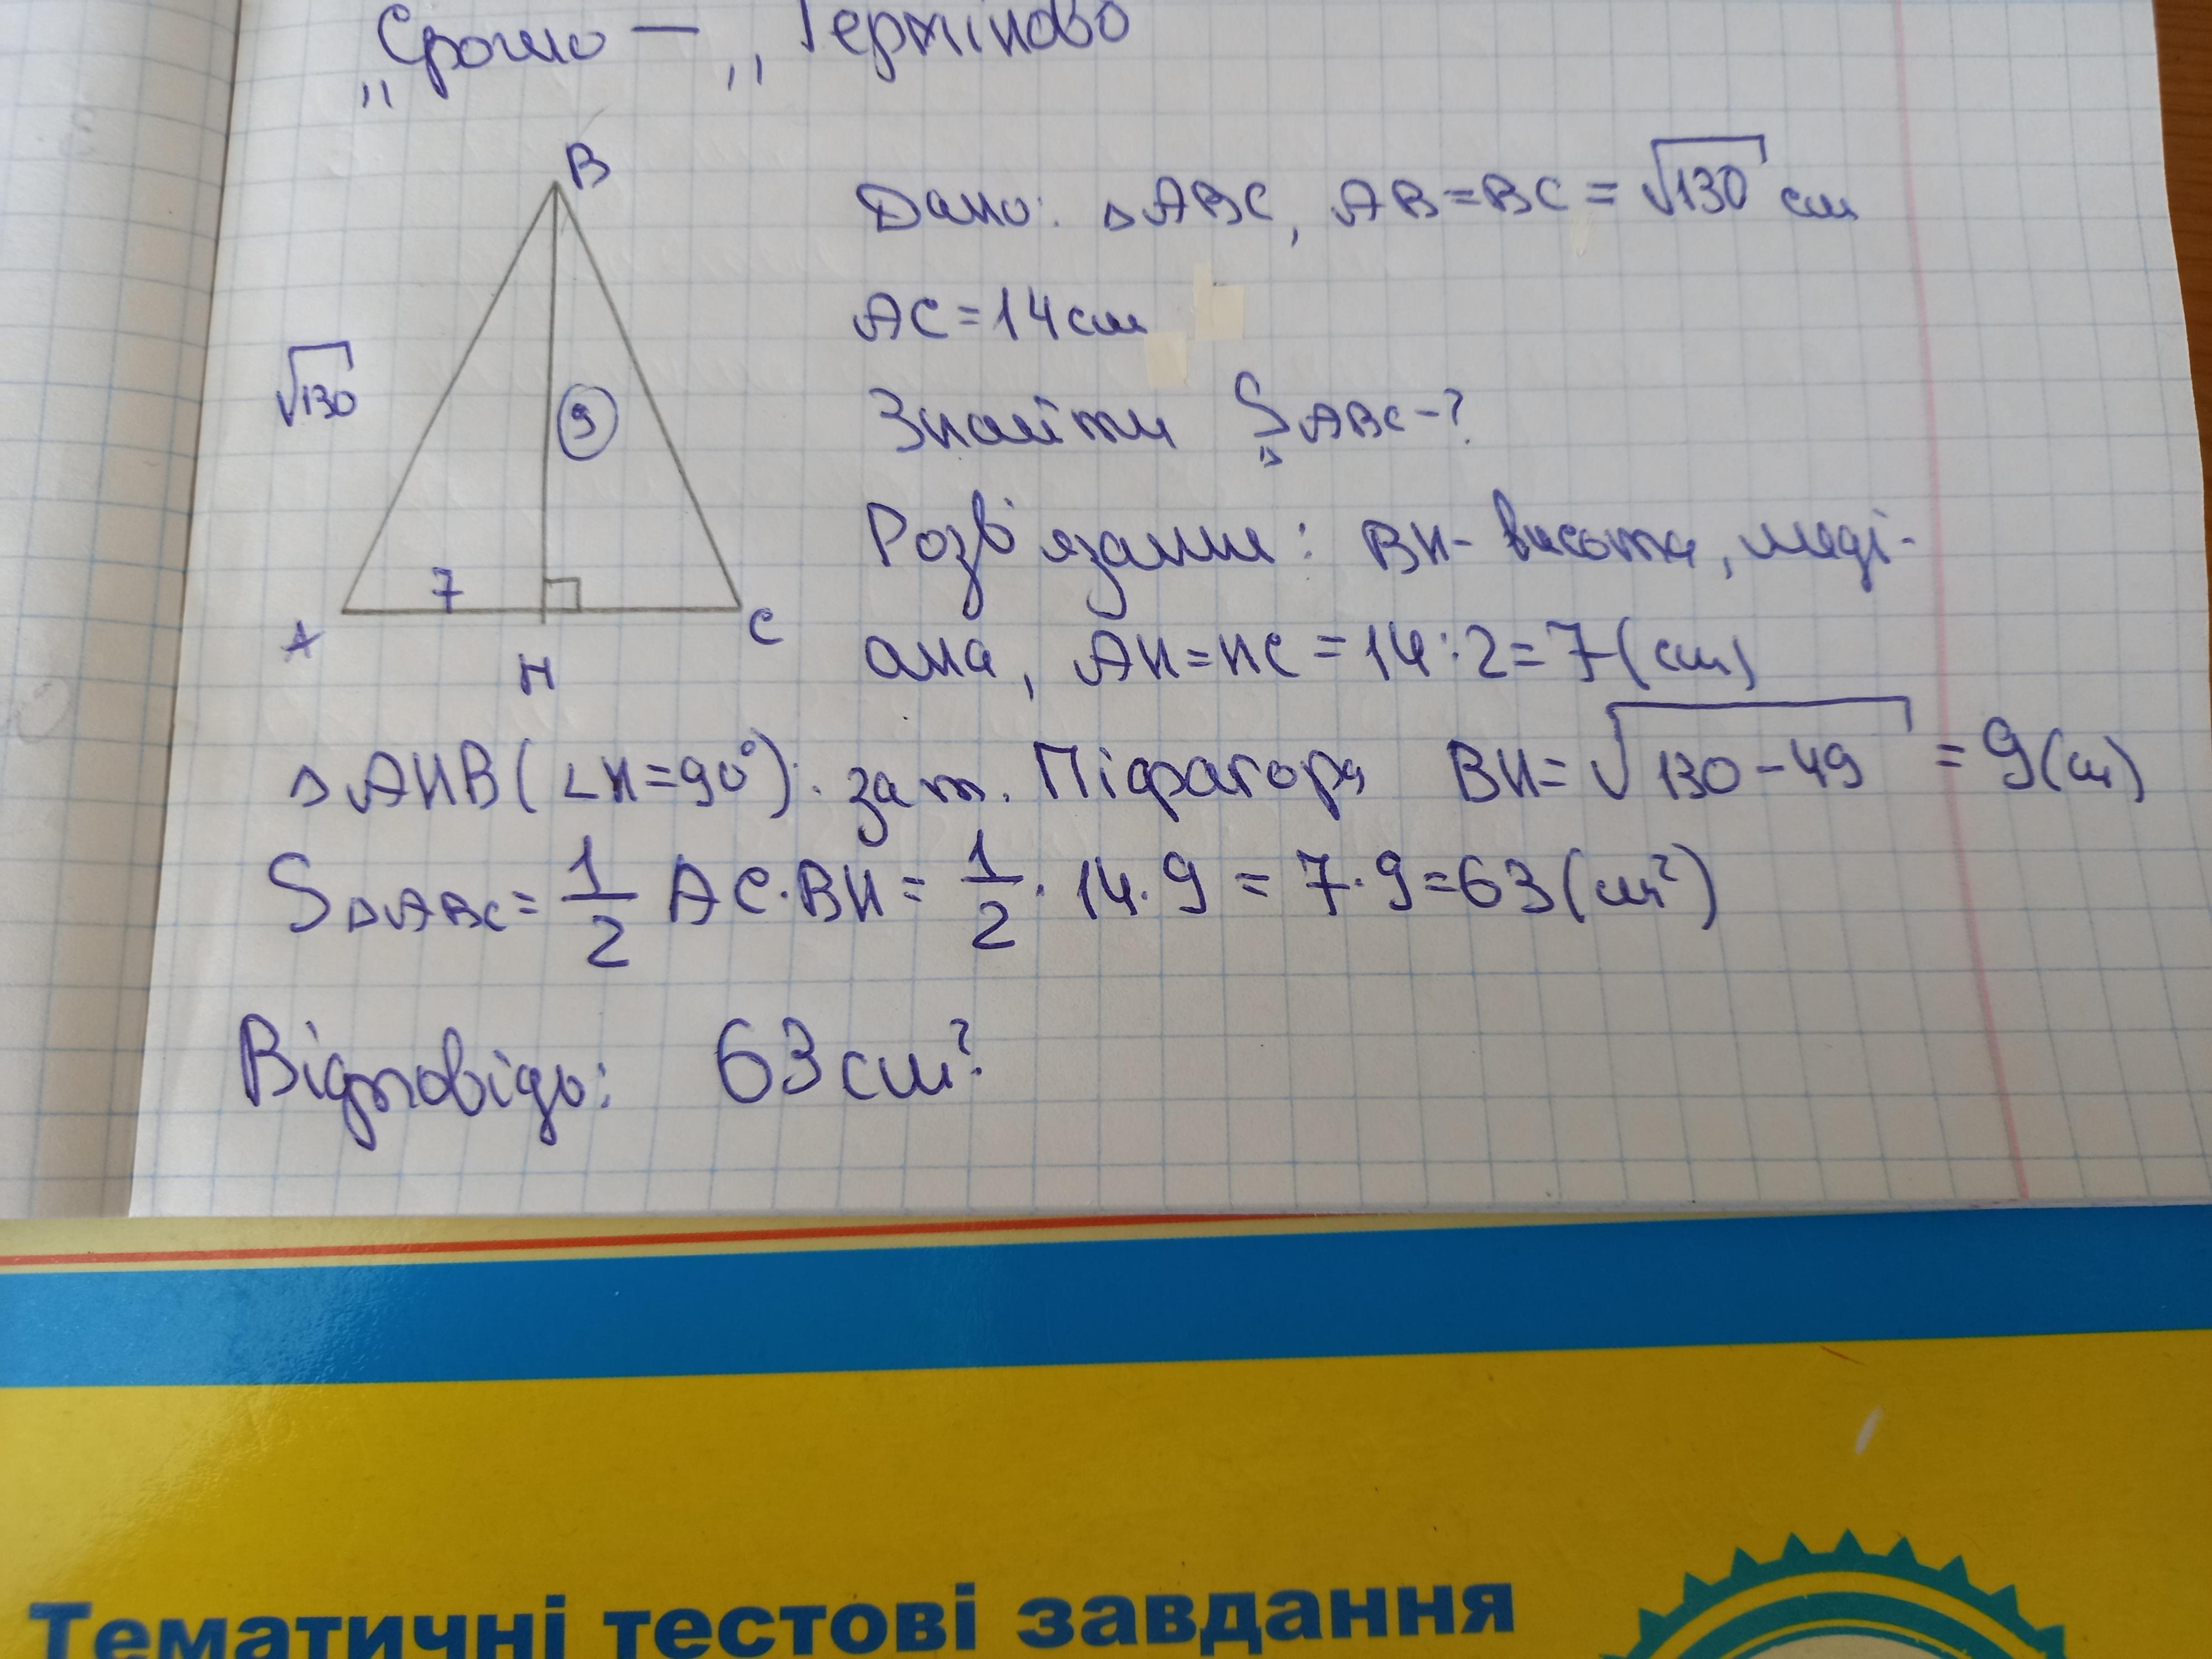 „Срочно — „Терміново
B
Дано: △ABC, AB=BC=√130 см
AC=14см
√130
9
Знайти S△ABC-?
Розв'язання: BH- висота, меді-
7
A
H
C
ана, AH=HC=14:2=7(см)
△AHB(∠H=90°): за т. Піфагора BH=√130-49 = 9(см)
S△ABC= 1/2 AC·BH= 1/2 · 14·9 = 7·9=63(см²)
Відповідь: 63см².
Тематичні тестові завдання